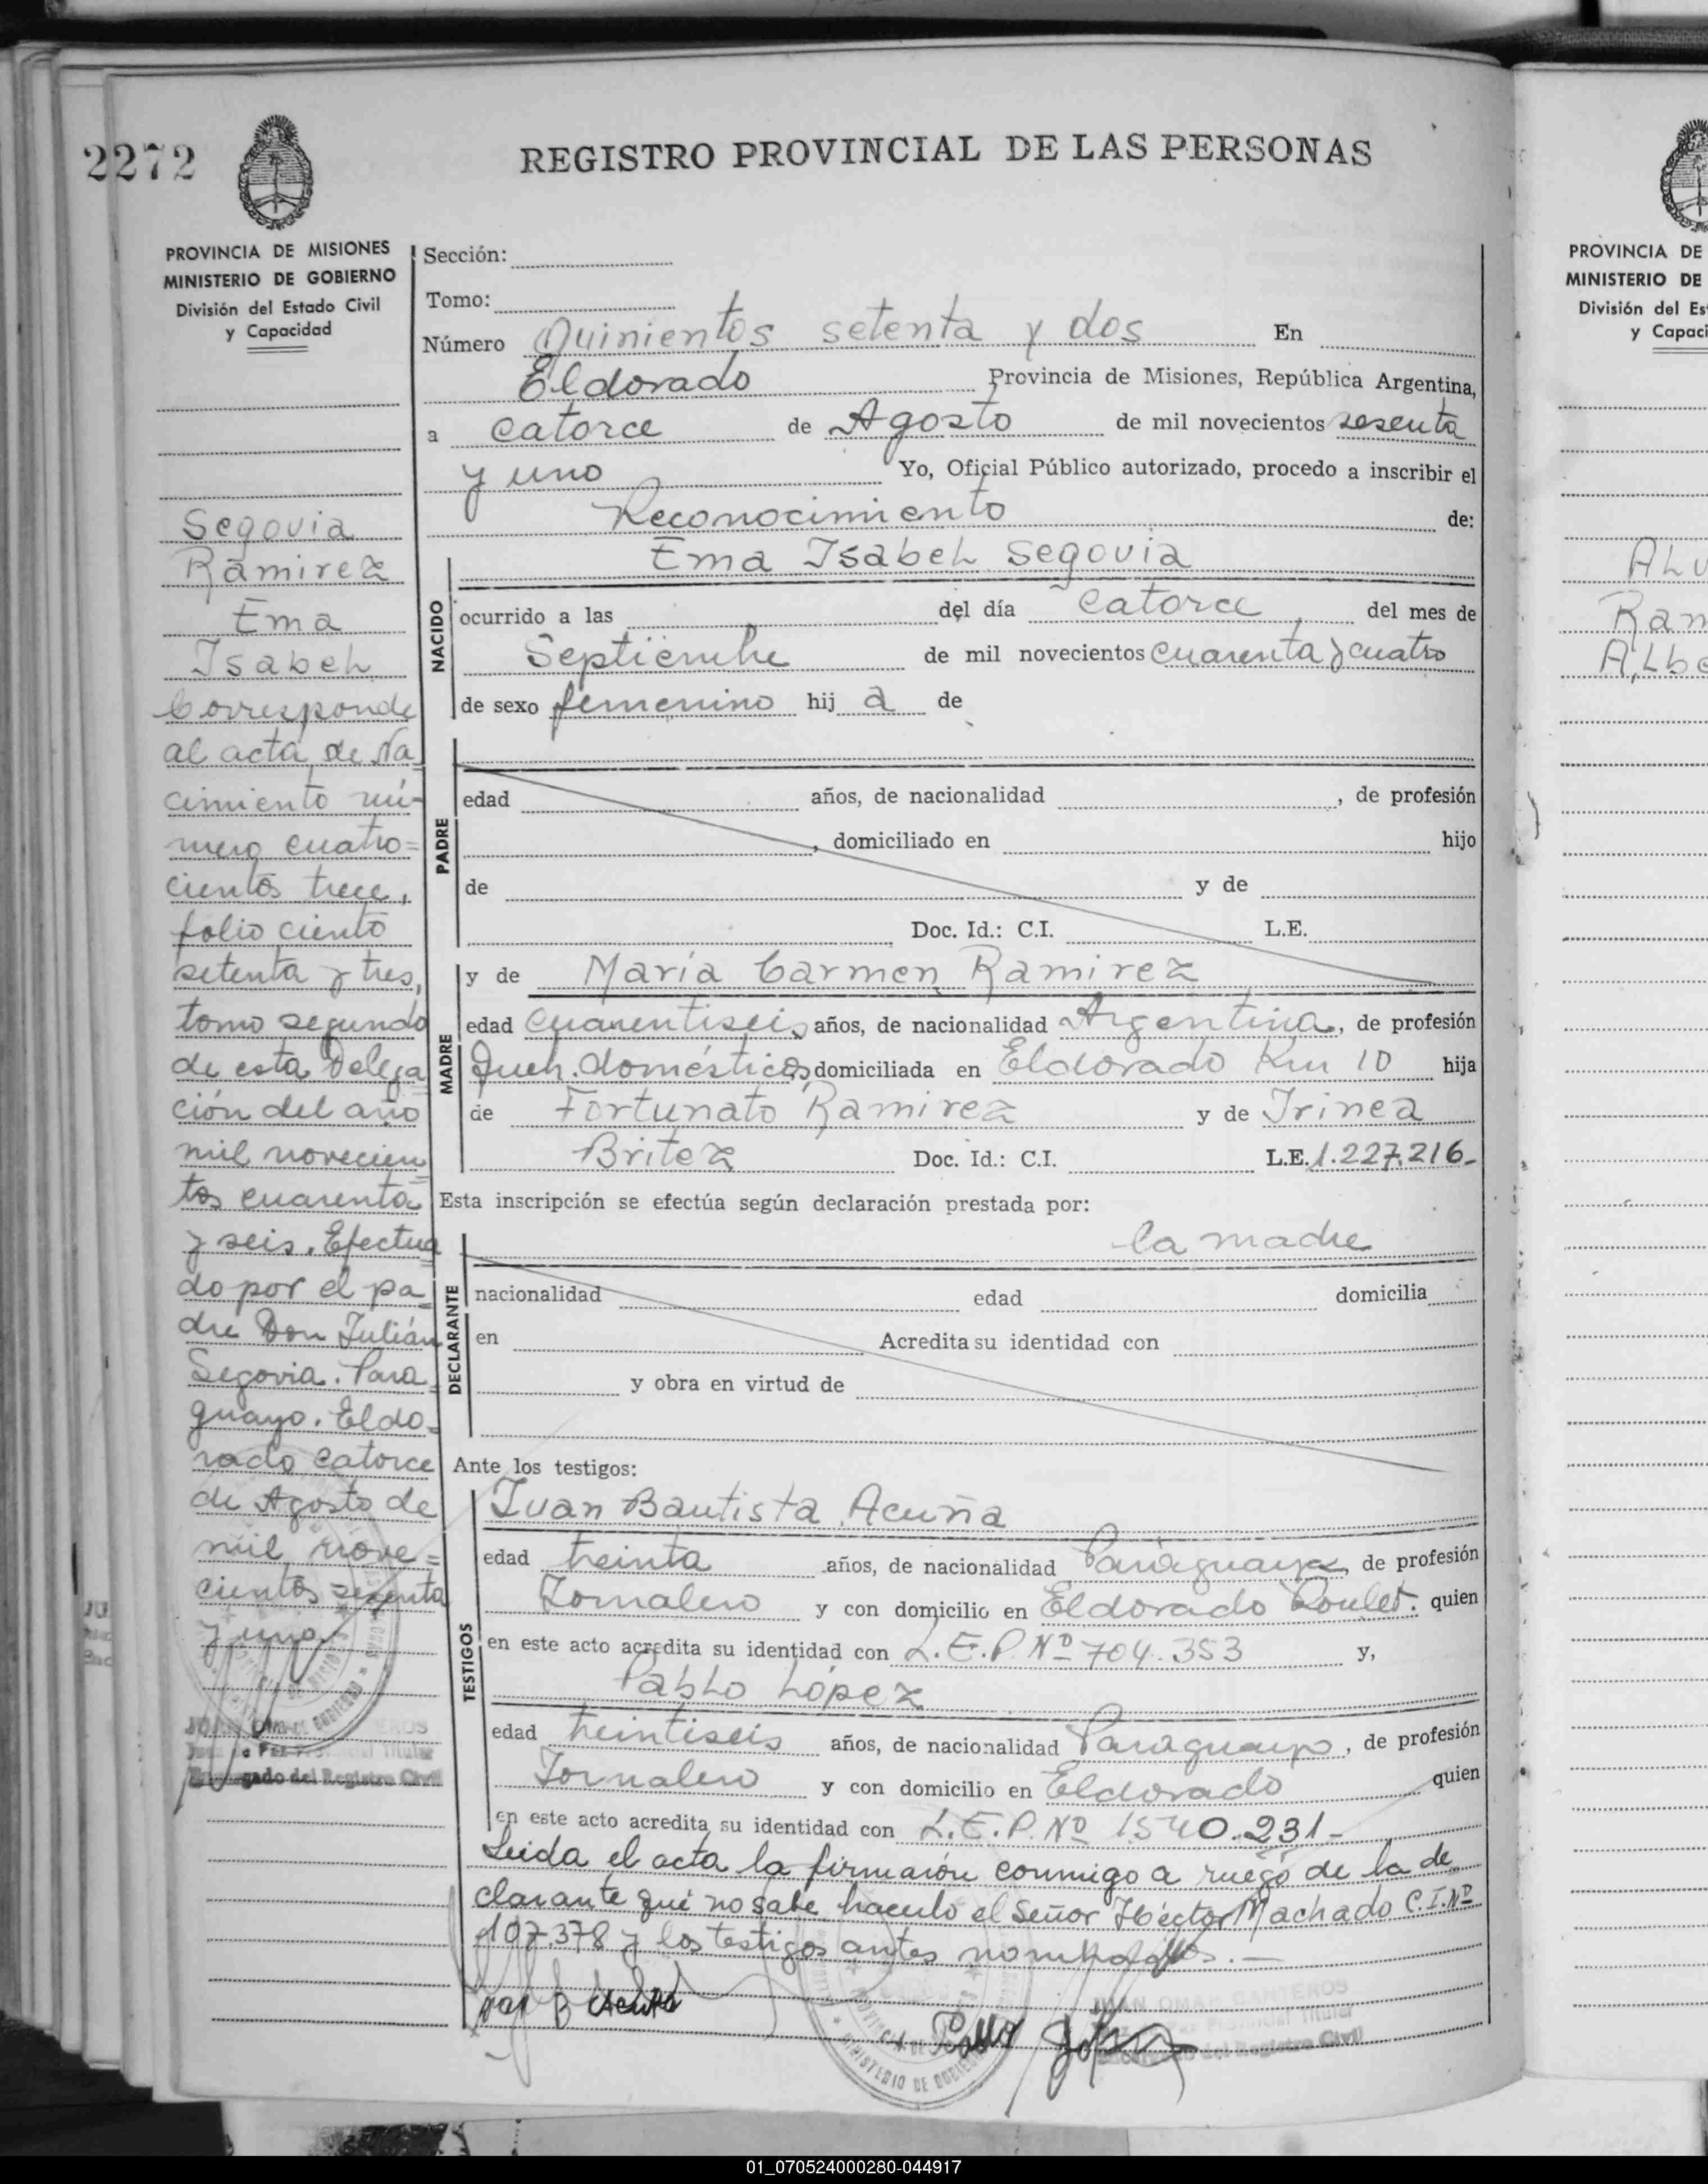 2272
REGISTRO PROVINCIAL DE LAS PERSONAS
PROVINCIA DE MISIONES
MINISTERIO DE GOBIERNO
División del Estado Civil
y Capacidad
Segovia
Ramirez
Ema
Isabel
Corresponde
al acta de Na
cimiento nú-
mero cuatro=
cientos trece,
folio ciento
setenta y tres,
tomo segundo
de esta Delega
ción del año
mil novecien
tos cuarenta
y seis. Efectua
do por el pa
dre Don Julián
Segovia. Para
guayo. Eldo-
rado catorce
de Agosto de
mil nove=
cientos sesenta
y uno
Sección:
Tomo:
Número Quinientos setenta y dos En
Eldorado Provincia de Misiones, República Argentina,
a catorce de Agosto de mil novecientos sesenta
y uno Yo, Oficial Público autorizado, procedo a inscribir el
Reconocimiento de:
Ema Isabel Segovia
NACIDO
ocurrido a las del día catorce del mes de
Septiembre de mil novecientos cuarenta y cuatro
de sexo femenino hij a de
PADRE
edad años, de nacionalidad , de profesión
, domiciliado en hijo
de y de
Doc. Id.: C.I. L.E.
y de María Carmen Ramirez
MADRE
edad cuarentiseis años, de nacionalidad Argentina, de profesión
Queh. domésticos domiciliada en Eldorado Km 10 hija
de Fortunato Ramirez y de Irinea
Britez Doc. Id.: C.I. L.E. 1.227.216-
Esta inscripción se efectúa según declaración prestada por:
la madre
DECLARANTE
nacionalidad edad domicilia
en Acredita su identidad con
y obra en virtud de
Ante los testigos:
TESTIGOS
Juan Bautista Acuña
edad treinta años, de nacionalidad Paraguaya, de profesión
Jornalero y con domicilio en Eldorado Roulet. quien
en este acto acredita su identidad con L.E.P. Nº 704.353 y,
Pablo López
edad treintiseis años, de nacionalidad Paraguayo, de profesión
Jornalero y con domicilio en Eldorado quien
en este acto acredita su identidad con L.E.P. Nº 1540.231-
Leida el acta la firmarón conmigo a ruego de la de
clarante que no sabe hacerlo el Señor Héctor Machado C.I.Nº
107.378 y los testigos antes nombrados.-
JUAN OMAR CANTEROS
Encargado del Registro Civil
MINISTERIO DE GOBIERNO
PROVINCIA DE
MINISTERIO DE
División del Es
y Capaci
ALV
Ram
ALbe
01_070524000280-044917